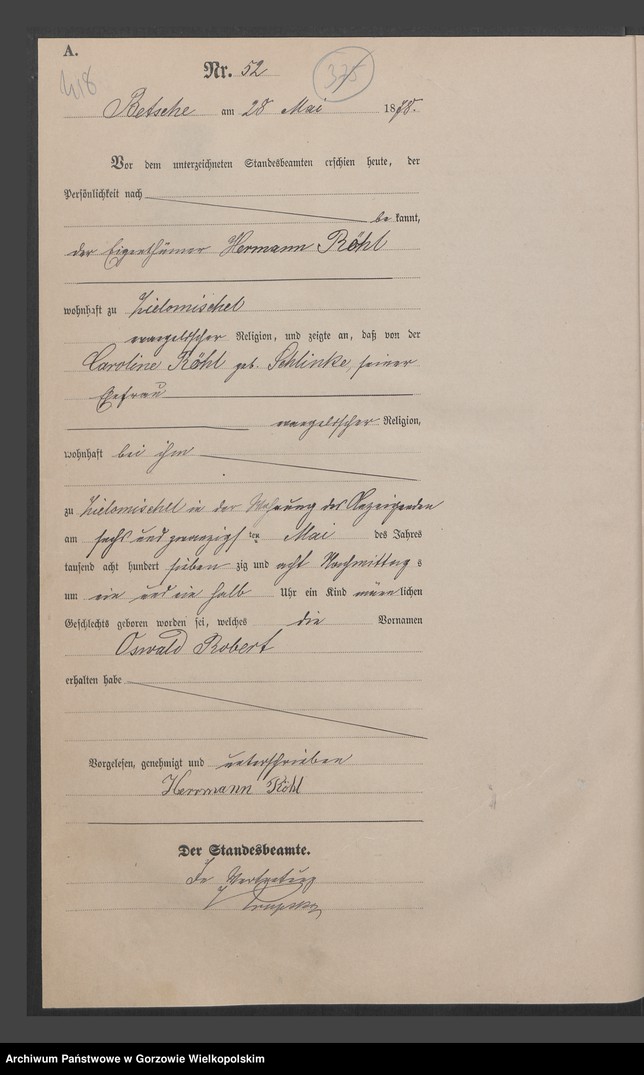 A.
Nr. 52
418
375
Betsche am 28 Mai 1878.
Vor dem unterzeichneten Standesbeamten erschien heute, der
Persönlichkeit nach
be kannt,
der Eigenthümer Hermann Röhl
wohnhaft zu Zielomischel
evangelischer Religion, und zeigte an, daß von der
Caroline Röhl geb. Schlinke, seiner
Ehefrau
evangelischer Religion,
wohnhaft bei ihm
zu Zielomischel in der Wohnung des Anzeigenden
am sechs und zwanzigsten Mai des Jahres
tausend acht hundert sieben zig und acht Nachmittag s
um ein und ein halb Uhr ein Kind männ lichen
Geschlechts geboren worden sei, welches die Vornamen
Oswald Robert
erhalten habe
Vorgelesen, genehmigt und unterschrieben
Herrmann Röhl
Der Standesbeamte.
In Vertretung
Archiwum Państwowe w Gorzowie Wielkopolskim